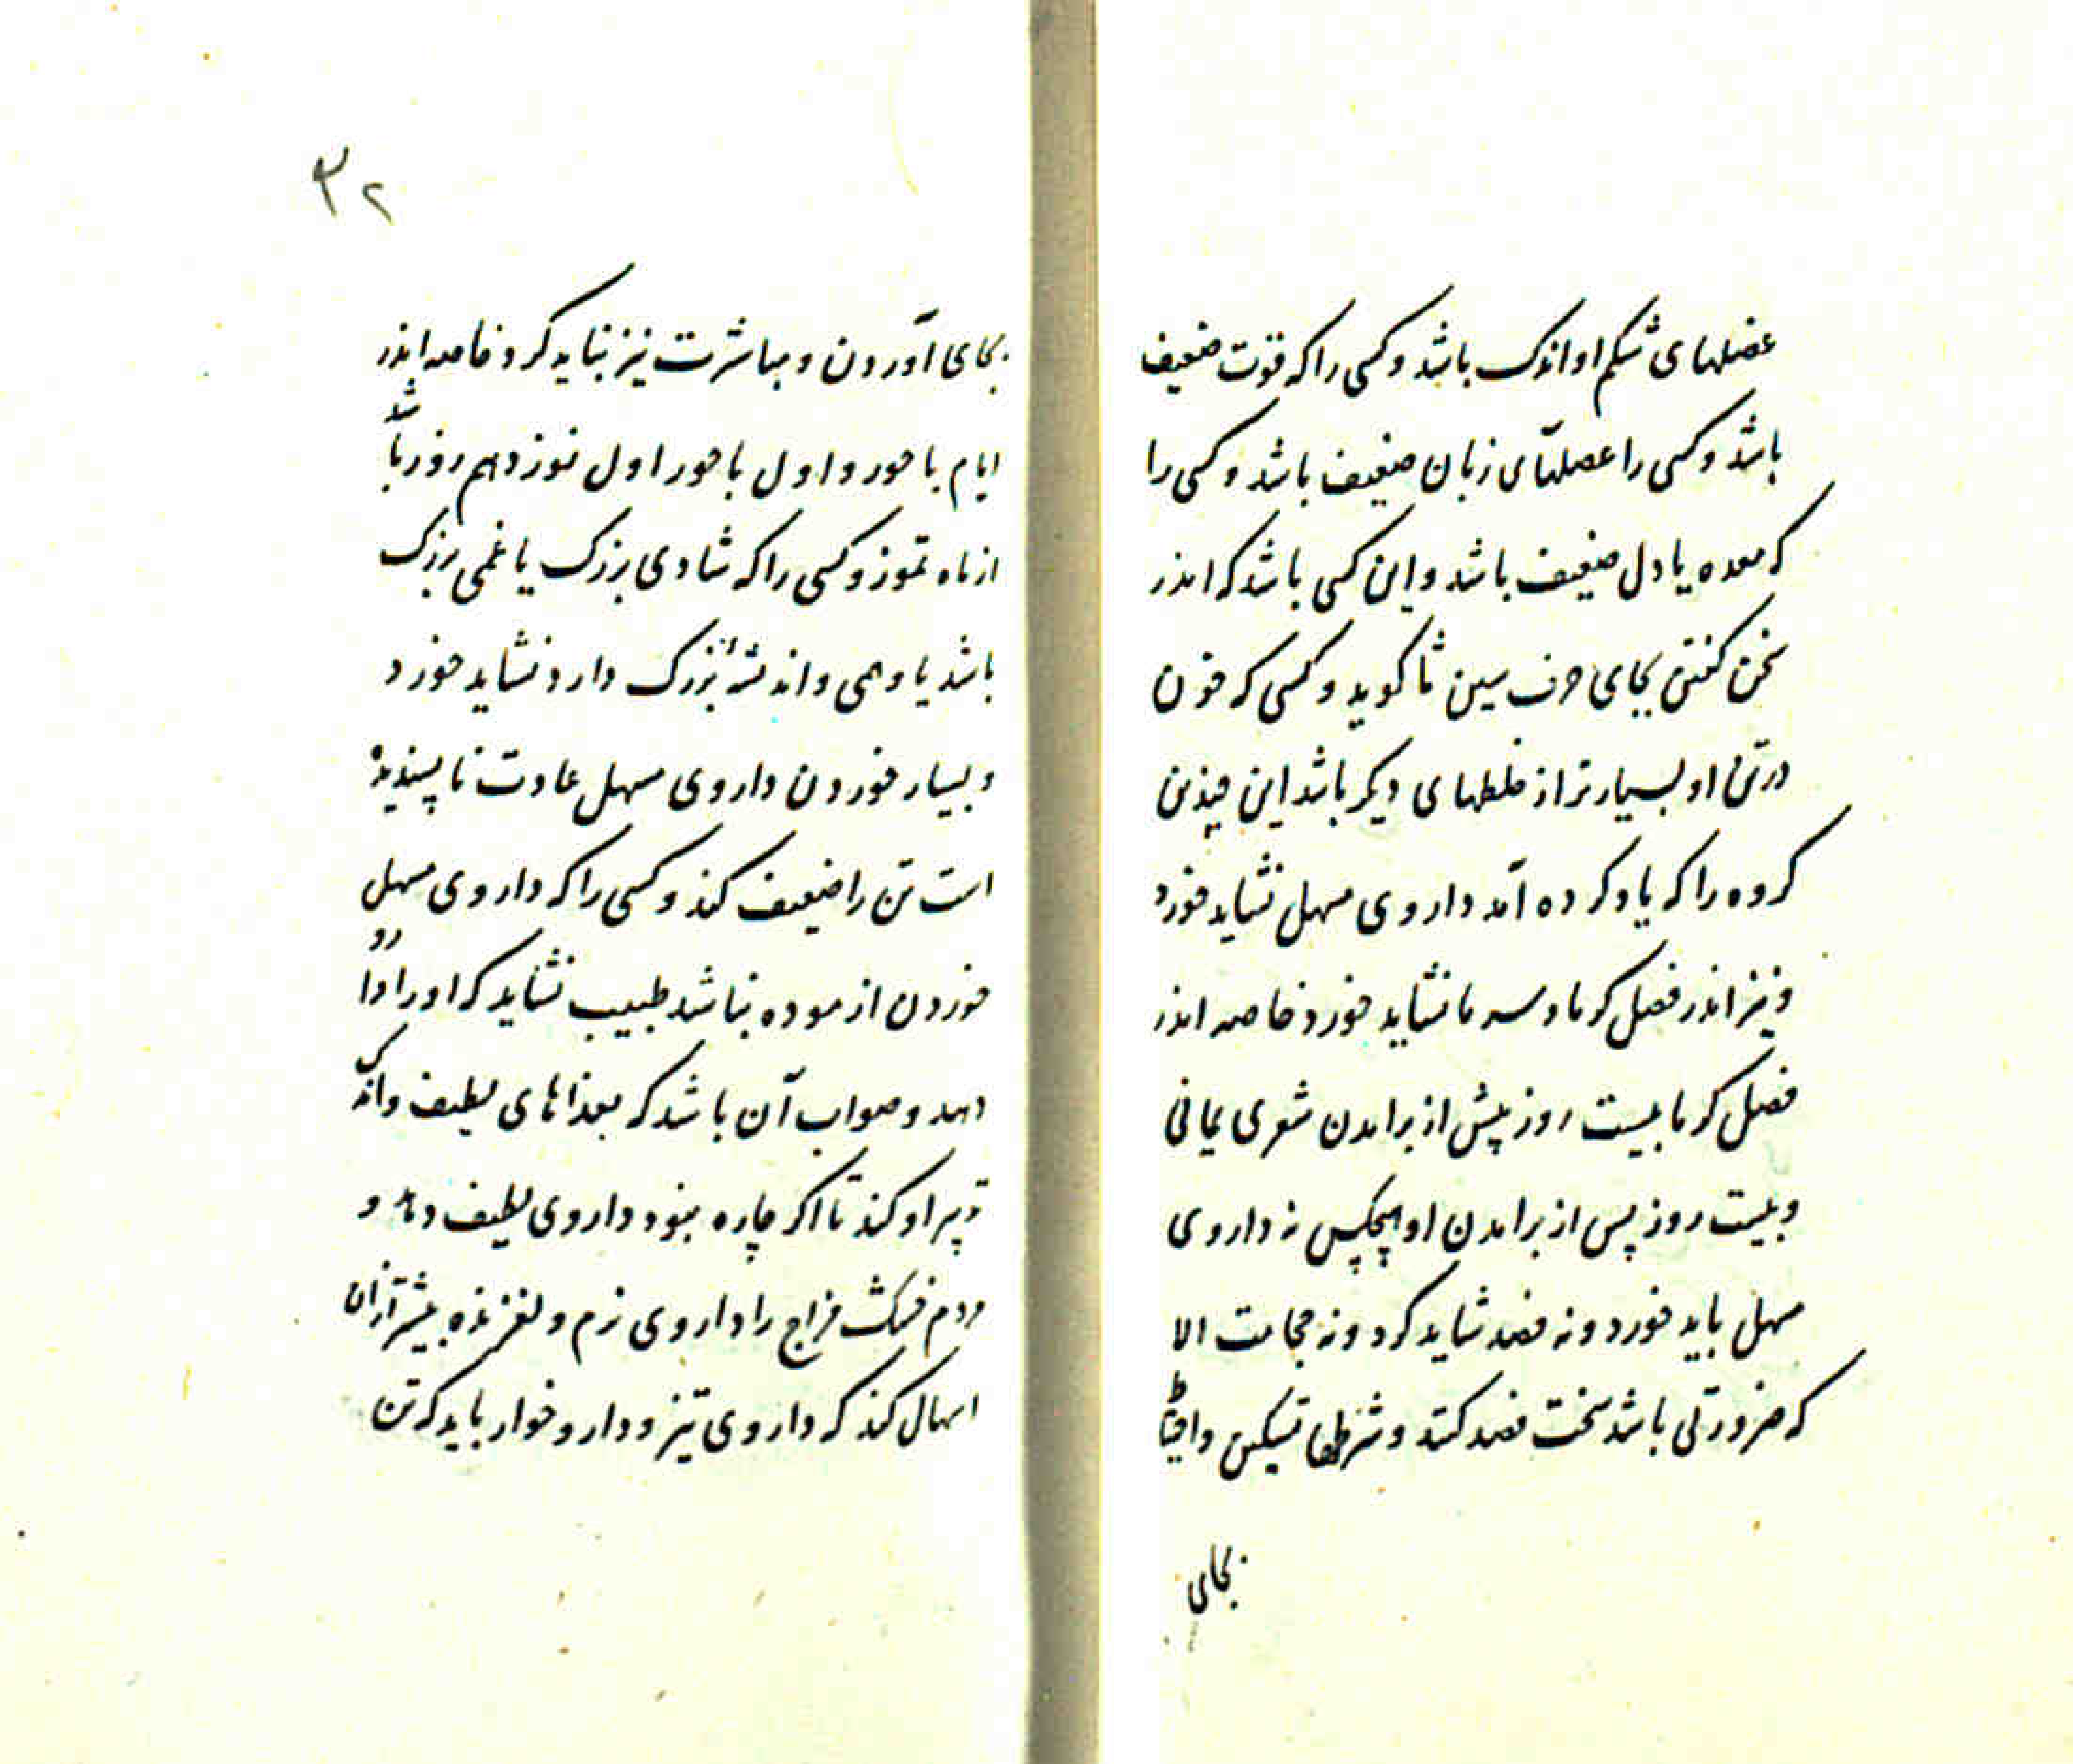 عضلهای شکم او اندک باشد و کسی را که قوت ضعیف
باشد و کسی را عضلهای زبان ضعیف باشد و کسی را
که معده یا دل ضعیف باشد و این کسی باشد که اندر
سخن کفتن بجای حرف سین ثا کوید و کسی که خون
در تن او بسیارتر از خلطهای دیکر باشد این چندین
کروه را که یاد کرده آمد داروی مسهل نشاید خورد
و نیز اندر فصل کرما و سرما نشاید خورد خاصه اندر
فصل کرما بیست روز پیش از برامدن شعری یمانی
و بیست روز پس از برامدن او هیچکس نه داروی
مسهل باید خورد و نه فصد شاید کرد و نه حجامت الا
که ضرورتی باشد سخت فصد کنند و شرطها تسکین و احتیاط
بجای
۳۲
بجای آوردن و مباشرت نیز نباید کرد خاصه اندر
ایام باحور و اول باحور اول نوزدهم روز باشد
از ماه تموز و کسی را که شادی بزرک یا غمی بزرک
باشد یا وهمی و اندیشهٔ بزرک دارد نشاید خورد
و بسیار خوردن داروی مسهل عادت ناپسندیده
است تن را ضعیف کند و کسی را که داروی مسهل
خوردن ازموده نباشد طبیب نشاید که او را دارو
دهد و صواب آن باشد که بغذاهای لطیف و اندک
تدبیر او کند تا اکر چاره نبود داروی لطیف دهد و
مردم خشک مزاج را داروی نرم و لغزنده بیشتر ازان
اسهال کند که داروی تیز و داروخوار باید که تن